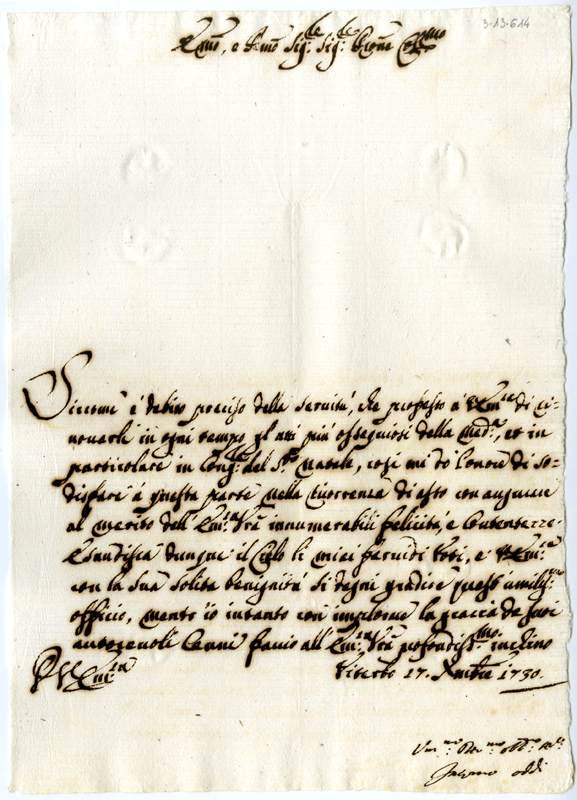 3-13-614
Em̃o, e Rmõ Sig.re Sig.re Pñe Colmo
Siccome è debito preciso della servitù, che professo à V. Em.za di ri=
novarle in ogni tempo gl'atti più ossequiosi della Med.ma, et in
particolare in Cong.ra del S.mo Natale, così mi dò l'onore di so=
disfare à questa parte nella ricorrenza di esso con augurare
al merito dell'Em.za Vrã innumerabili felicità, e Contentezze.
Esaudisca dunque il Cielo li miei fervidi Voti, e V. Em.za
con la sua solita benignità si degni gradire quest'umiliss.mo
officio, mentre io intanto con implorare la grazia de suoi
autorevoli Cenni faccio all'Em.za Vrã profondiss.mo inchino
Viterbo 17. Xmbre 1730.
D. V. Em.za
Um.mo Dev.mo Obb.mo
Oddi